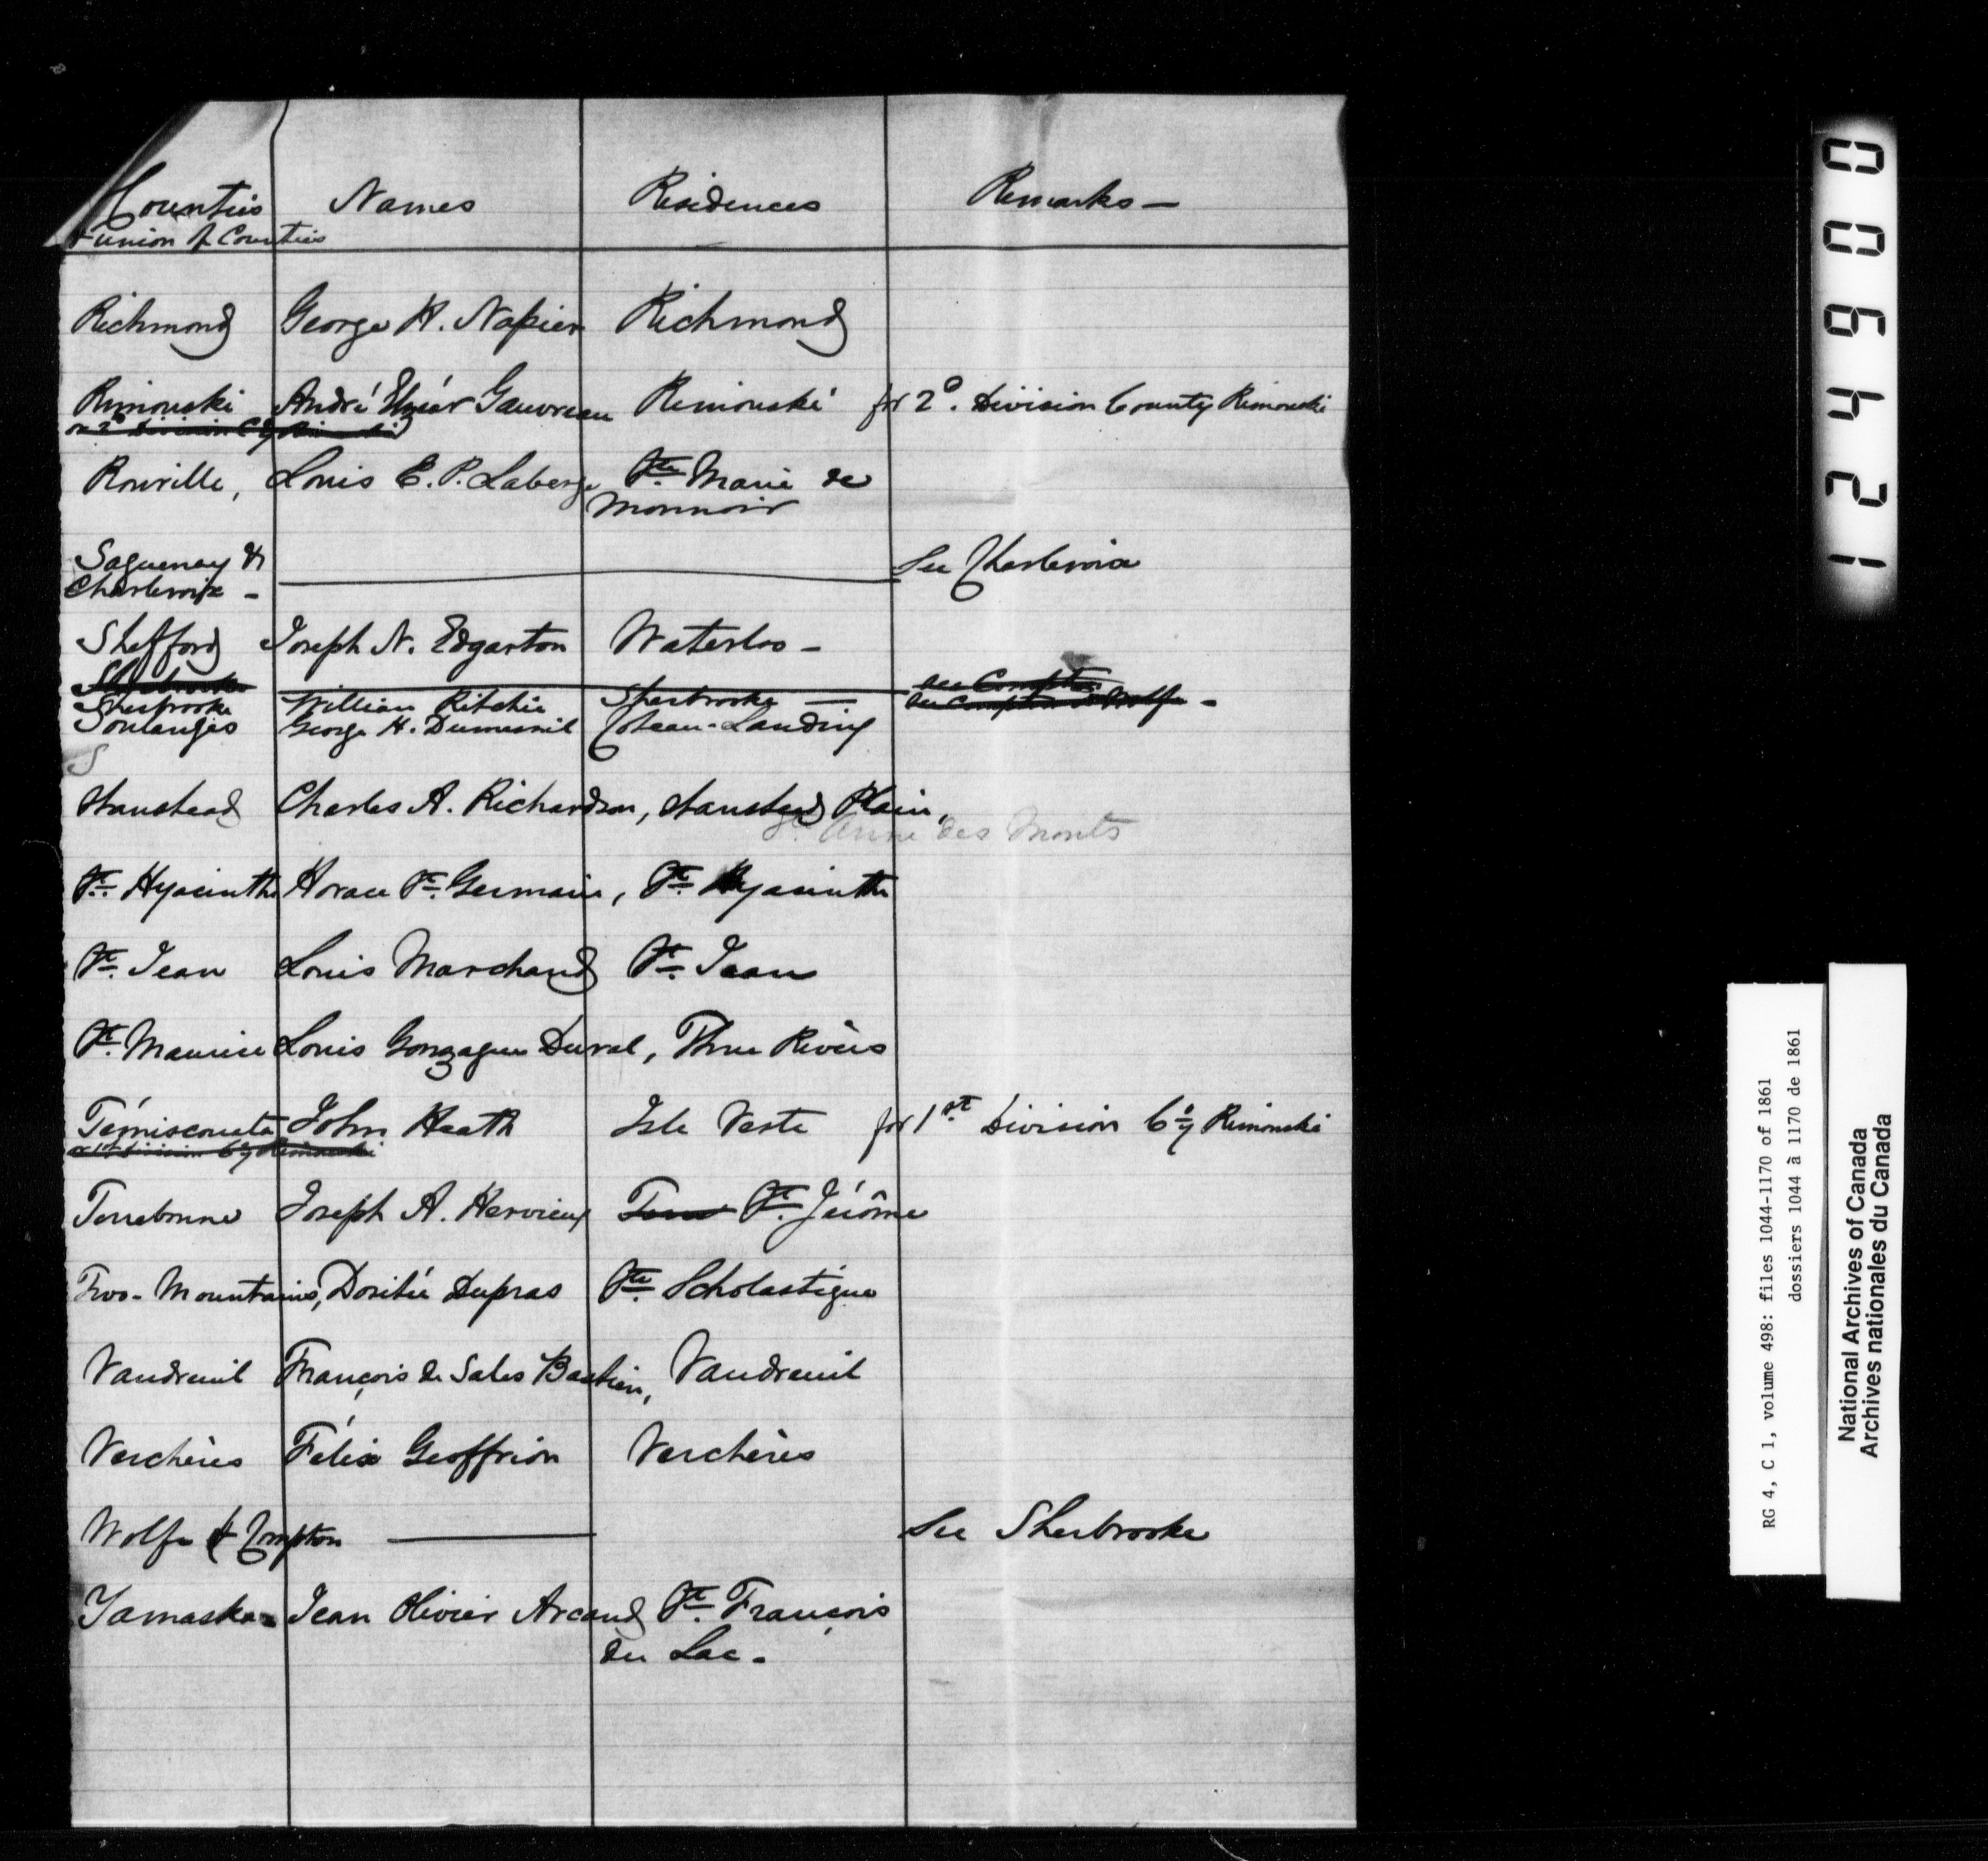 Counties Names Residences Remarks —
& union of Counties
Richmond George H. Napier Richmond
Rimouski André Elzéar Gauvreau Rimouski for 2º. Division County Rimouski
or 2º Division Cy Rimouski
Rouville, Louis E. P. Laberge Ste. Marie de
Monnoir
Saguenay & See Charlevoix
Charlevoix –
Shefford Joseph N. Edgarton Waterloo –
Sherbrooke See Compton
Sherbrooke William Ritchie Sherbrooke — See Compton & Wolfe –
Soulanges George H. Dumesnil Coteau-Landing
S
Stanstead Charles A. Richardson, Stanstead Plain,
St. Anne des Monts
St. Hyacinthe Horace St. Germain, St. Hyacinthe
St. Jean Louis Marchand St. Jean
St. Maurice Louis Gonzague Duval, Three Rivers
Témiscouata John Heath Isle Verte for 1st Division Cy Rimouski
or 1st Division Cy Rimouski
Terrebonne Joseph A. Hervieux Terre St. Jérôme
Two-Mountains, Dorithé Dupras Ste. Scholastique
Vaudreuil François de Sales Bastien, Vaudreuil
Verchères Félix Geoffrion Verchères
Wolfe & Compton — See Sherbrooke
Yamaska Jean Olivier Arcand St. François
du Lac.
009421
RG 4, C 1, volume 498: files 1044-1170 of 1861
dossiers 1044 à 1170 de 1861
National Archives of Canada
Archives nationales du Canada